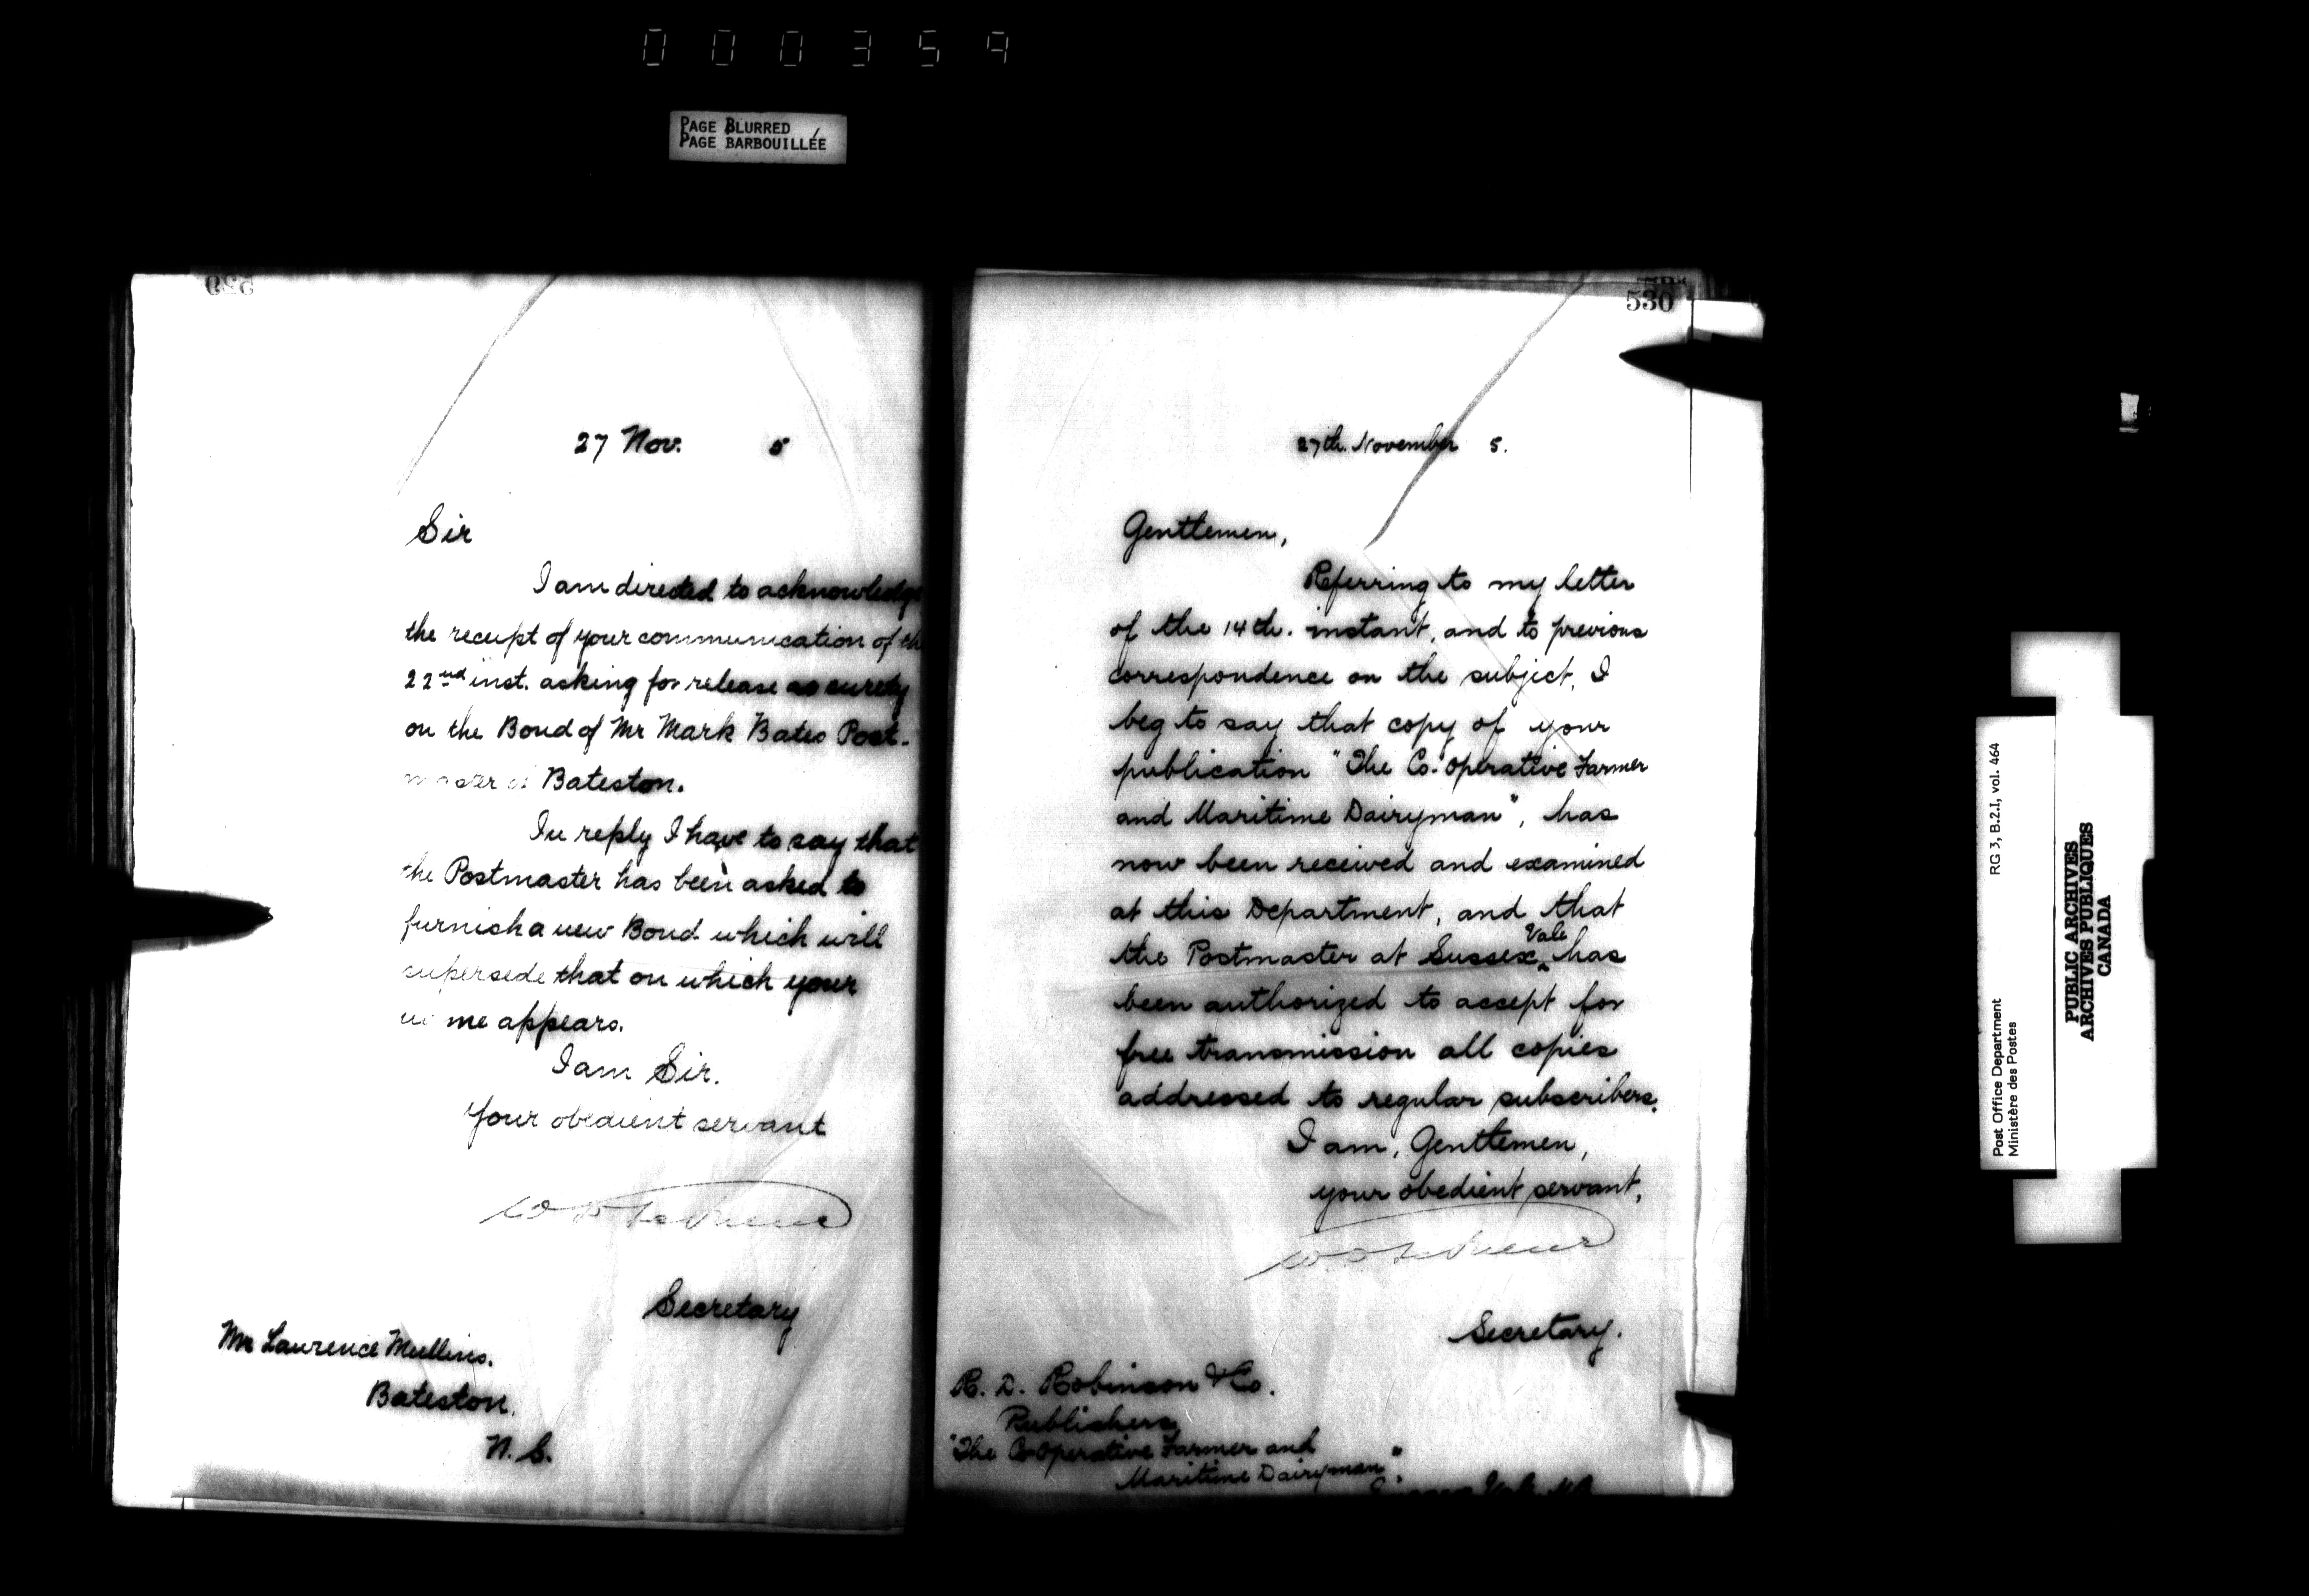 000359
PAGE BLURRED
PAGE BARBOUILLÉE
27 Nov. 5
Sir
I am directed to acknowledge
the receipt of your communication of the
22nd inst. asking for release as surety
on the Bond of Mr Mark Bates Post-
master at Bateston.
In reply I have to say that
the Postmaster has been asked to
furnish a new Bond which will
supersede that on which your
name appears.
I am Sir.
Your obedient servant
Secretary
Mr Laurence Mullins.
Bateston.
N.S.
530
27th. November 5.
Gentlemen,
Referring to my letter
of the 14th. instant, and to previous
correspondence on the subject, I
beg to say that copy of your
publication "The Co-operative Farmer
and Maritime Dairyman", has
now been received and examined
at this Department, and that
the Postmaster at Sussex Vale has
been authorized to accept for
free transmission all copies
addressed to regular subscribers.
I am, Gentlemen,
your obedient servant,
Secretary.
R. D. Robinson & Co.
Publishers
"The Co-operative Farmer and
Maritime Dairyman".
Post Office Department
Ministère des Postes
RG 3, B.2.I, vol. 464
PUBLIC ARCHIVES
ARCHIVES PUBLIQUES
CANADA